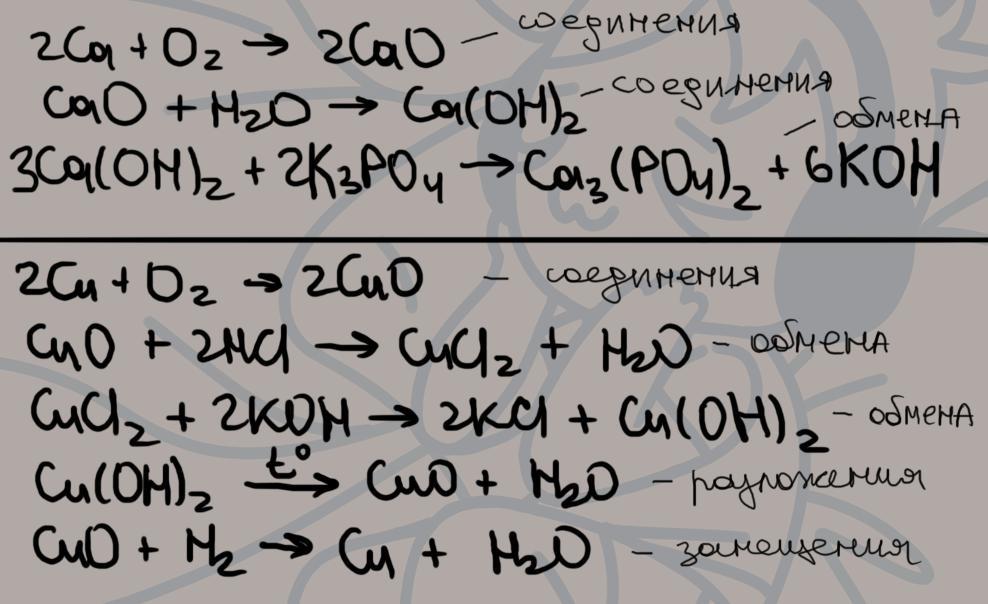 2Ca + O₂ → 2CaO – соединения
CaO + H₂O → Ca(OH)₂ – соединения
3Ca(OH)₂ + 2K₃PO₄ → Ca₃(PO₄)₂ + 6KOH – обмена
2Cu + O₂ → 2CuO – соединения
CuO + 2HCl → CuCl₂ + H₂O – обмена
CuCl₂ + 2KOH → 2KCl + Cu(OH)₂ – обмена
Cu(OH)₂ →t° CuO + H₂O – разложения
CuO + H₂ → Cu + H₂O – замещения